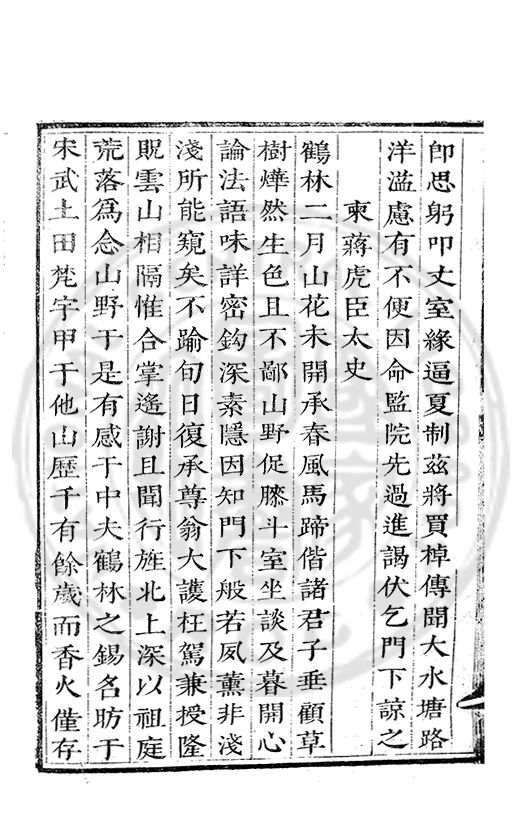 卽思躬叩丈室緣逼夏制茲將買棹傳聞大水塘路
洋溢慮有不便因命監院先過進謁伏乞門下諒之
柬蔣虎臣太史
鶴林二月山花未開承春風馬蹄偕諸君子垂顧草
樹燁然生色且不鄙山野促膝斗室坐談及暮開心
論法語味詳密鈎深素隱因知門下般若夙薰非淺
淺所能窺矣不踰旬日復承尊翁大護枉駕兼授隆
貺雲山相隔惟合掌遙謝且聞行旌北上深以祖庭
荒落爲念山野于是有感于中夫鶴林之錫名昉于
宋武土田梵宇甲于他山歷千有餘歲而香火僅存